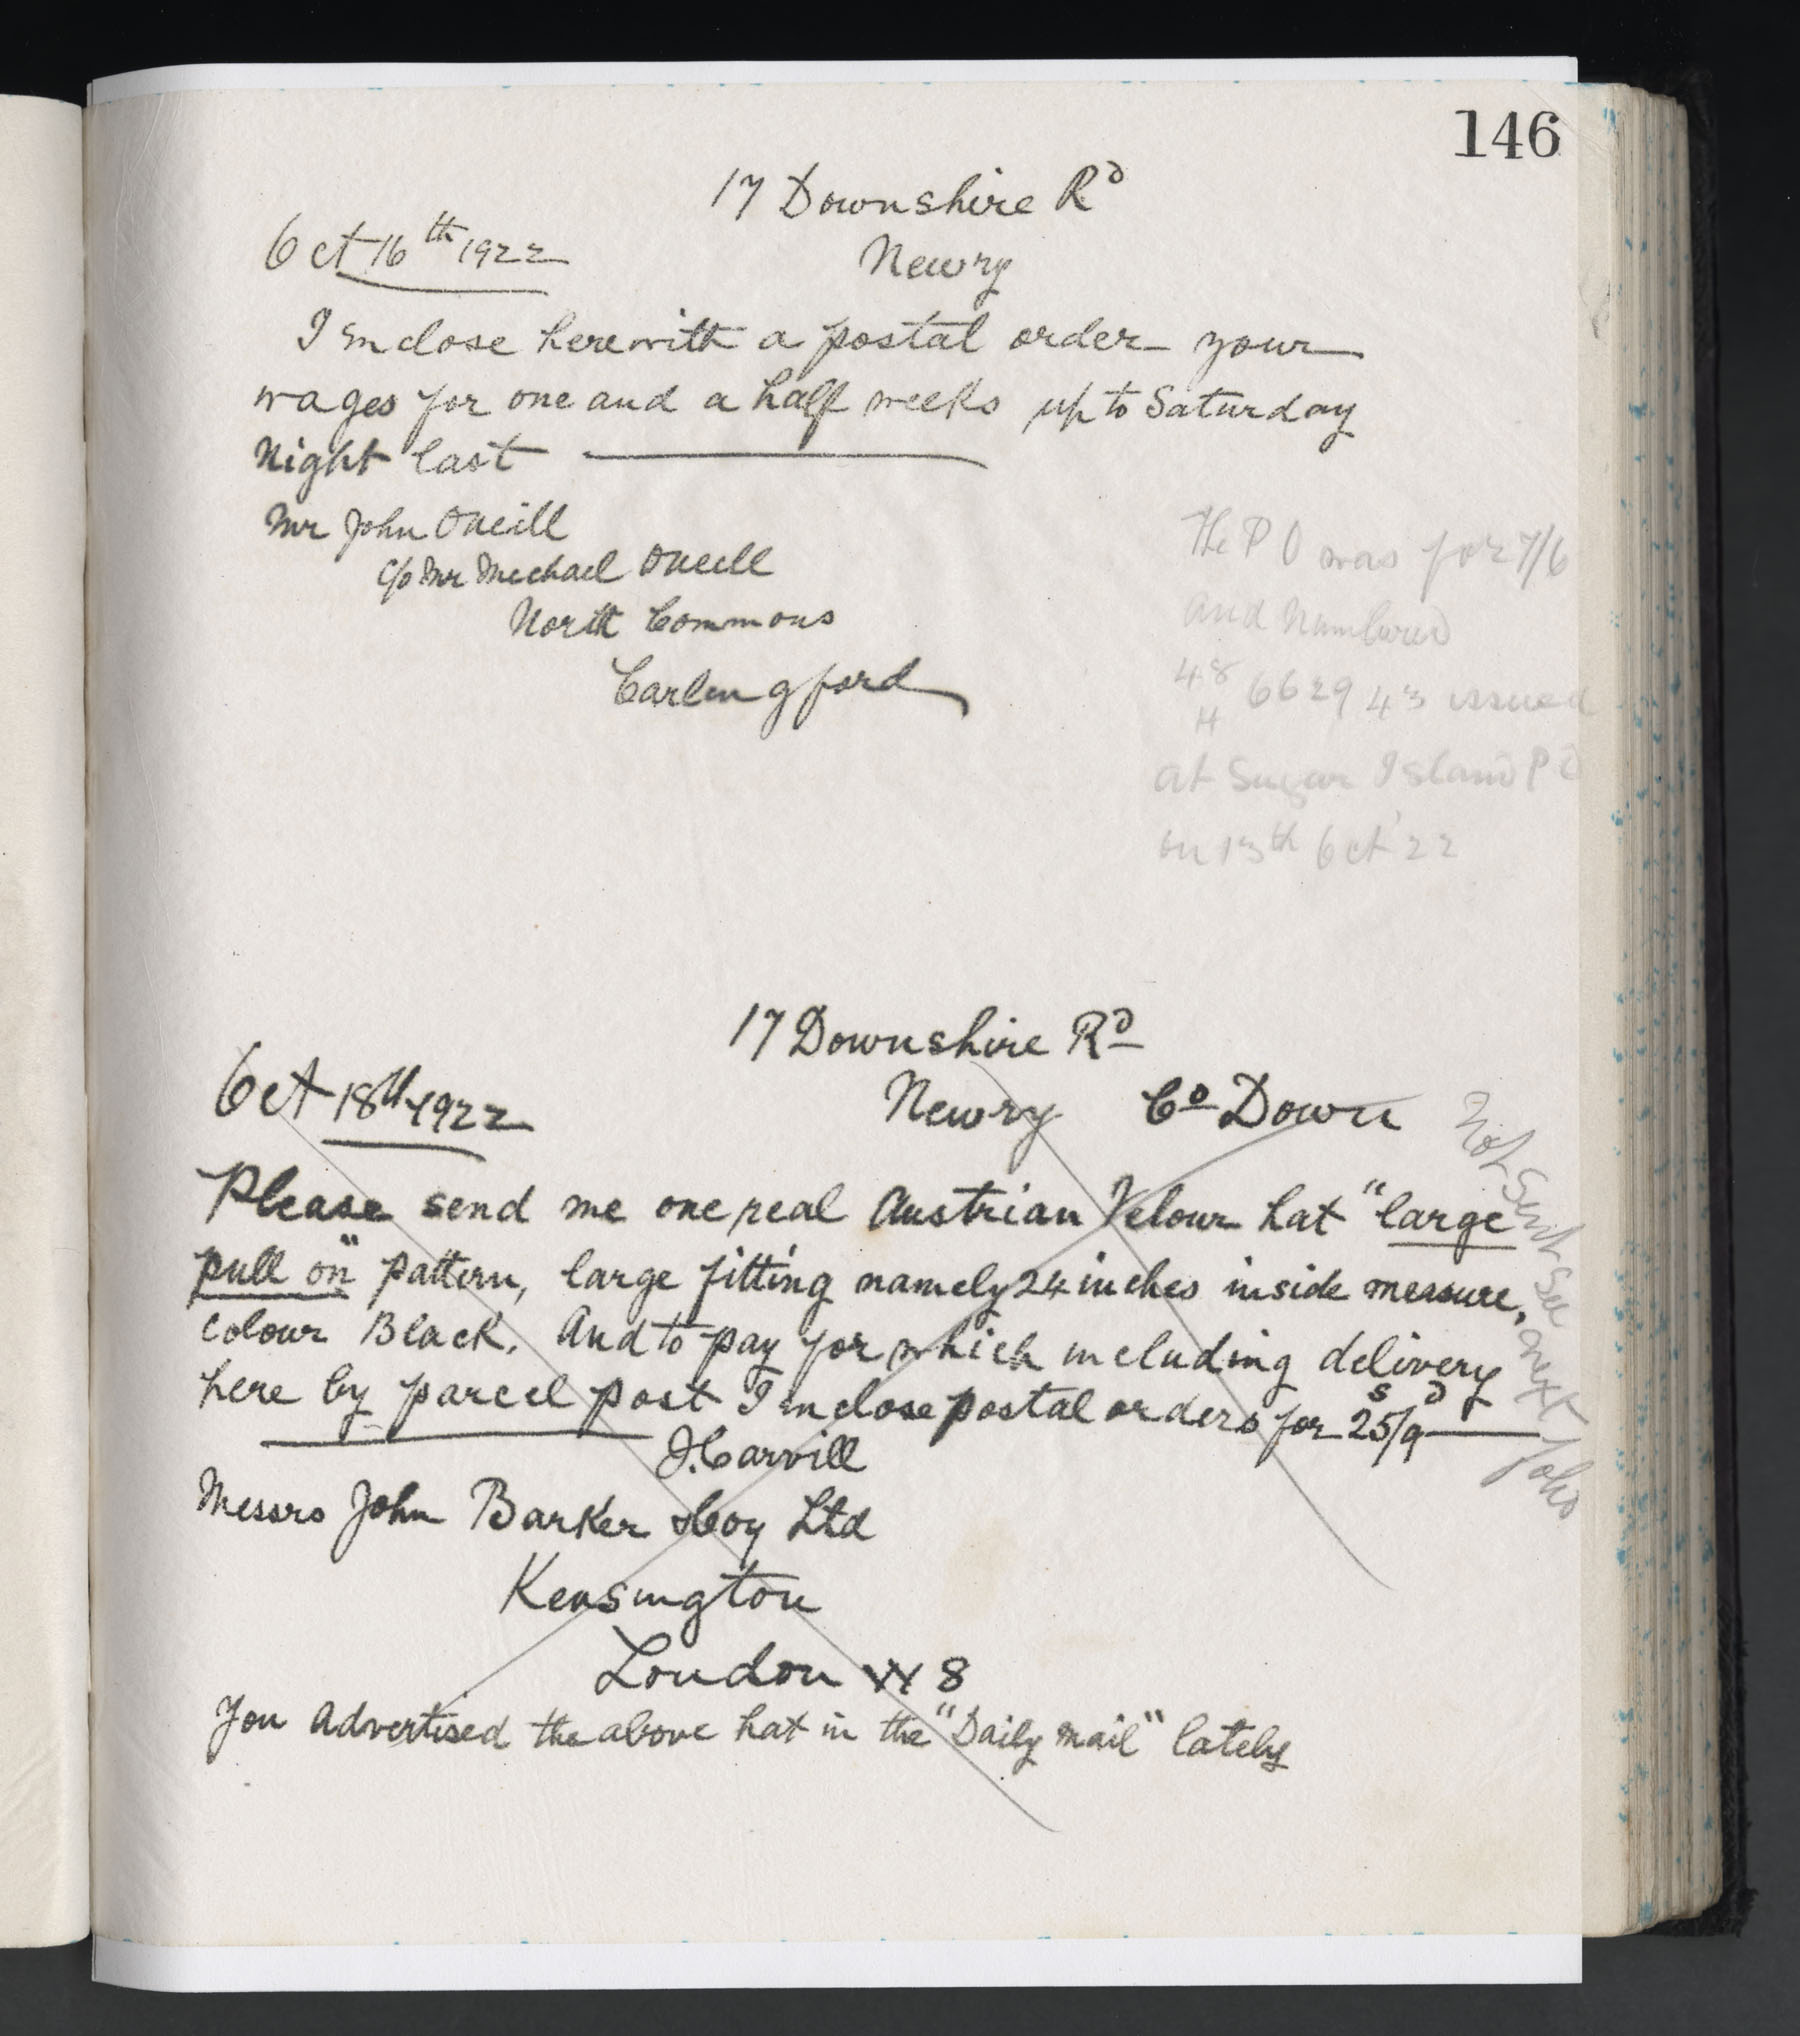 146
17 Downshire Rd
Oct 16th 1922
Newry
I enclose herewith a postal order your
wages for one and a half weeks up to Saturday
Night last
Mr John ONeill
c/o Mr Michael ONeill
North Commons
Carlingford
The P O was for 7/6
and Numbered
48/H 662943 issued
at Sugar Island P O
on 13th Oct '22
17 Downshire Rd
Oct 18th 1922
Newry Co Down
Please send me one real Austrian Velour hat "large
pull on" pattern, large fitting namely 24 inches inside measure,
colour Black. And to pay for which including delivery
here by parcel post I enclose postal orders for 25s/9d
J. Carvill
Messrs John Barker & Coy Ltd
Kensington
London W 8
You advertised the above hat in the "Daily Mail" lately
Not Sent See next folio